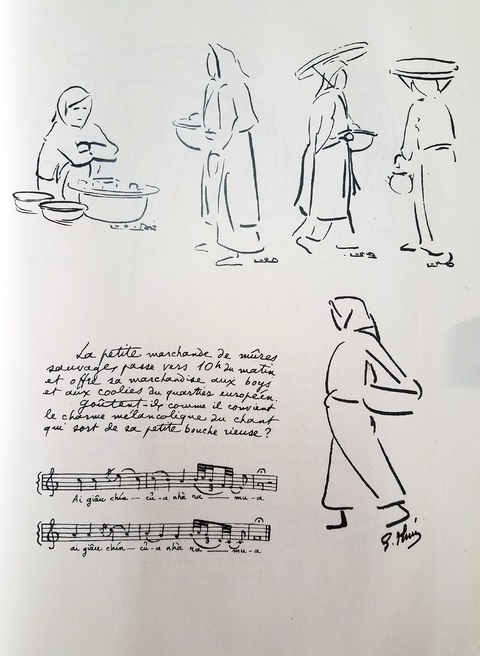 La petite marchande de mûres
sauvages passe vers 10h du matin
et offre sa marchandise aux boys
et aux coolies du quartier européen.
Goûtent-ils comme il convient
le charme mélancolique du chant
qui sort de sa petite bouche rieuse ?
Ai giâu chín — củ-a nhà ra — mu-a
ai giâu chín — củ-a nhà ra — mu-a